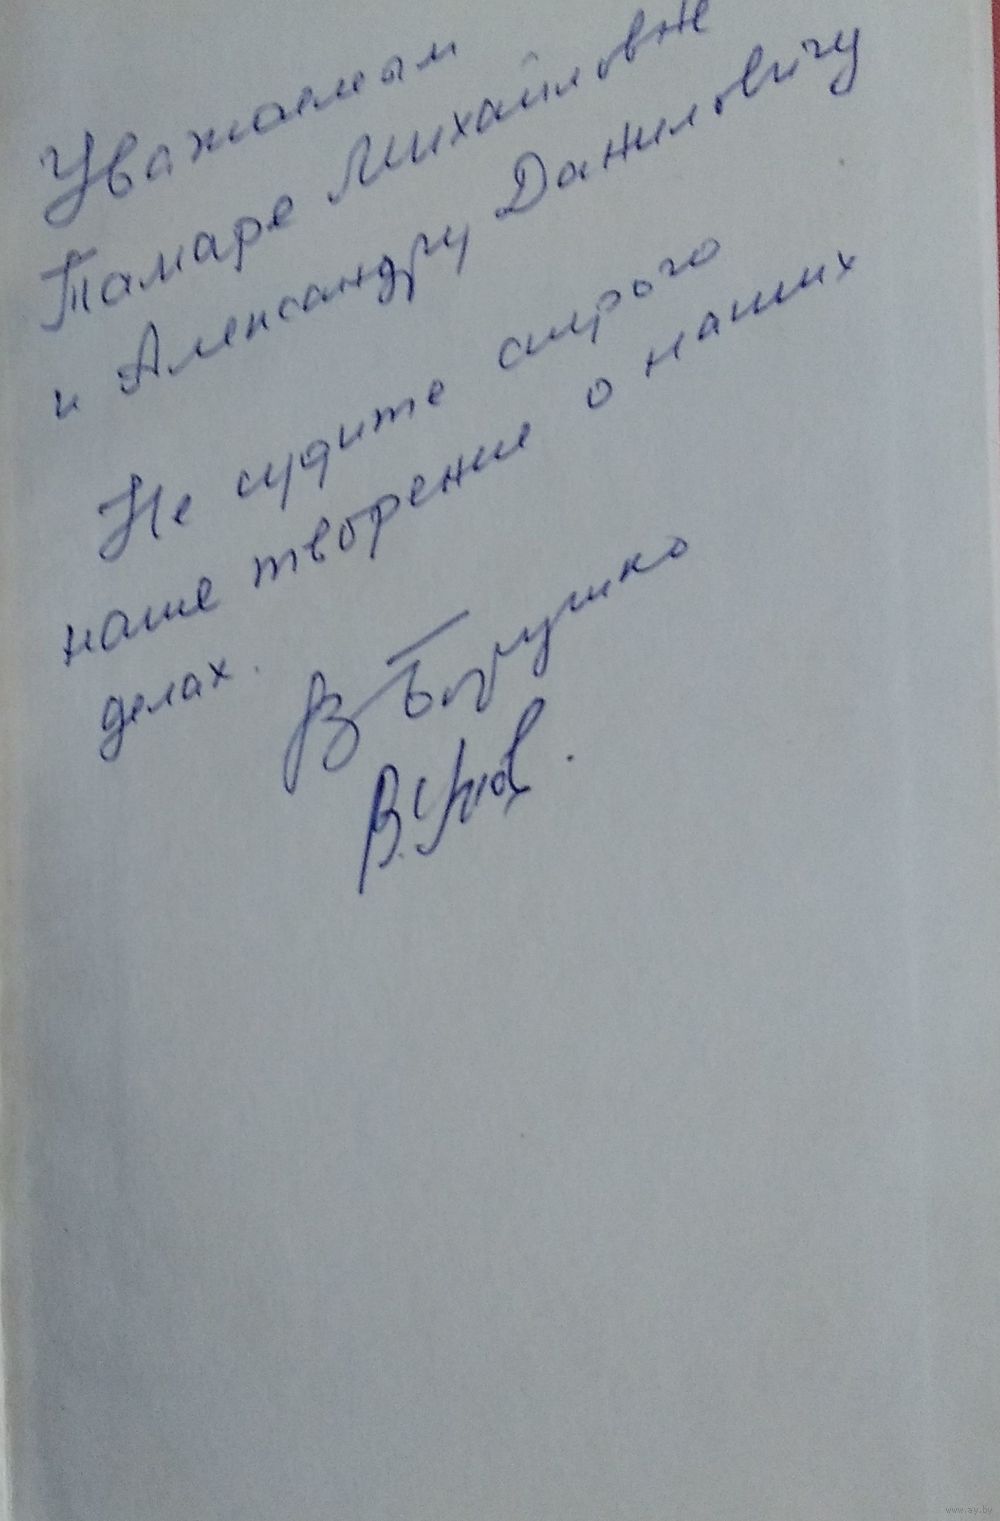 Уважаемым
Тамаре Михайловне
и Александру Даниловичу
Не судите строго
наше творение о наших
делах.
В
В.
www.ay.by